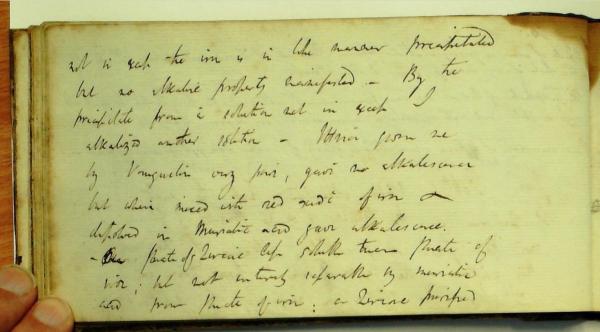 not in excess the iron is in like manner precipitated
but no alkaline property manifested – By the
precipitate from a solution not in excess I
alkalized another solution – given me
by Vauquelin very pure, gave no alkalescence
but when mixed with red oxide of iron &
dissolved in Muriatic acid gave alkalescence.
– of Zircone less soluble than of
iron; but not entirely separable by muriatic
acid from of iron; or Zircone purified